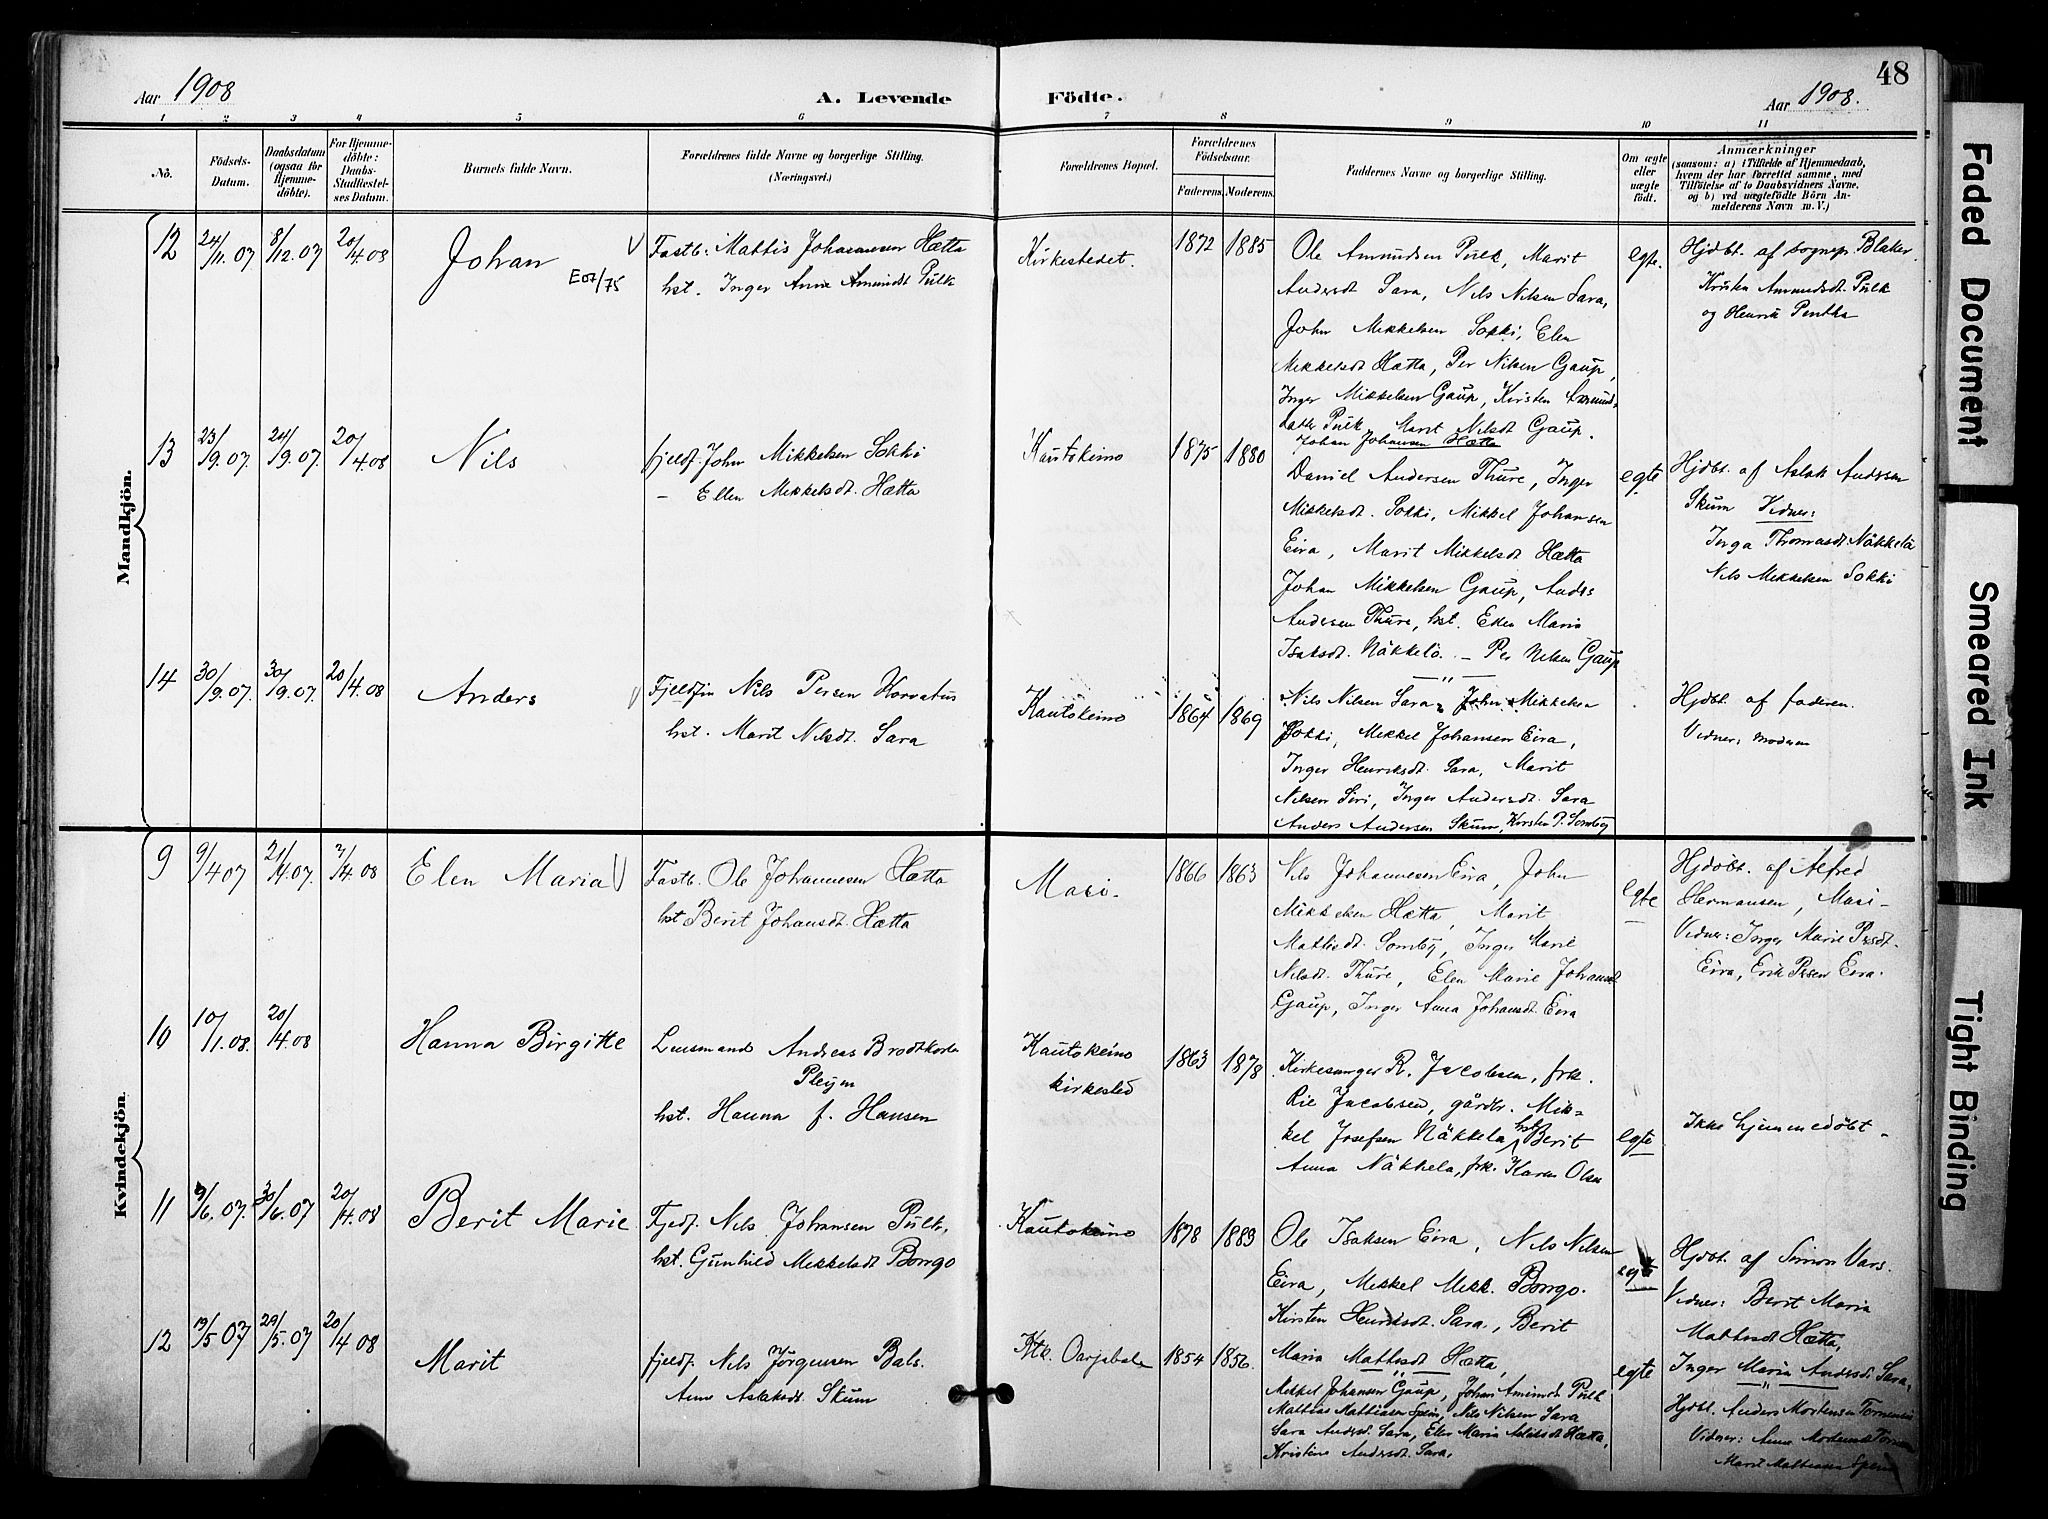 Aar 1908
A. Levende Födte.
Aar 1908.
48
1 2 3 4 5 6 7 8 9 10 11
No.
Födsels-Datum.
Daabsdatum (ogsaa for Hjemme-döbte).
For Hjemme-döbte: Daabs-Stadfæstel-ses Datum.
Barnets fulde Navn.
Forældrenes fulde Navne og borgerlige Stilling.
(Næringsvei.)
Forældrenes Bopæl.
Forældrenes Födselsaar.
Faderens. Moderens.
Faddernes Navne og borgerlige Stilling.
Om ægte eller uægte födt.
Anmærkninger
(saasom: a) i Tilfælde af Hjemmedaab,
hvem der har forrettet samme, med
Tilföielse af to Daabsvidners Navne,
og b) ved uægtefödte Börn An-
melderens Navn m. V.)
Mandkjön.
12 24/11.07 8/12.07 20/4.08 Johan
E07/75
Fastb: Mattis Johannesen Hætta
hst. Inger Anna Amundt Pulk
Kirkestedet.
1872 1885
Ole Amundsen Pulk, Marit
Andersdt Sara, Nils Nilsen Sara,
John Mikkelsen Sokki, Elen
Mikkelsdt Hætta, Per Nilsen Gaup,
Inger Mikkelsen Gaup, Kirsten Amund-
datter Pulk, Marit Nilsdt Gaup.
Johan Johansen Hætta
egte.
Hjdbt. af sognep. Blaker.
Kristen Amundsdt. Pulk
og Henrik Pentha
13 23/9.07. 24/9.07. 20/4.08 Nils
fjeldf. John Mikkelsen Sokki
– Ellen Mikkelsdt. Hætta
Kautokeino
1875 1880
Daniel Andersen Thure, Inger
Mikkelsdt. Sokki, Mikkel Johansen
Eira, Marit Mikkelsdt Hætta
Johan Mikkelsen Gaup, Anders
Andersen Thure, hst. Elen Maria
Isaksdt. Näkkelä. – Per Nilsen Gaup
egte
Hjdbt. af Aslak Andersen
Skum Vidner:
Inga Thomasdt Näkkelä
Nils Mikkelsen Sokki
14 30/9.07. 30/9.07. 20/4.08 Anders
Fjeldfin Nils Persen Horvatus
hst. Marit Nilsdt. Sara
Kautokeino
1864 1869
Nils Nilsen Sara, John Mikkelsen
Sokki, Mikkel Johansen Eira,
Inger Henriksdt. Sara, Marit
Nilsen Siri, Inger Andersdt. Sara
Anders Andersen Skum, Kirsten P. Somby
Hjdbt. af faderen.
Vidner: moderen
Kvindekjön.
9 9/4 07 21/4.07. 7/4.08 Elen Maria
Fastb. Ole Johannesen Hætta
hst Berit Johansdt. Hætta
Masi.
1866 1863
Nils Johannesen Eira, John
Mikkelsen Hætta, Marit
Mathisdt. Somby, Inger Marie
Nilsdt. Thure, Elen Marie Johansdt
Gaup, Inger Anna Johansdt. Eira
egte
Hjdöbt. af Alfred
Hermansen, Masi –
Vidner: Inger Marie Persdt.
Eira, Erik Persen Eira.
10 10/1.08. 20/4.08 Hanna Birgitte
Lensmand Andreas Brodtkorb
Pleym
hst. Hanna f. Hansen
Kautokeino
kirkested
1863 1878
Kirkesanger R. Jacobsen, frk.
Rie Jacobsen, gårdbr. Mik-
kel Josefsen Näkkela, hst Berit
Anna Näkkela, frk. Karen Olsen
egte
Ikke hjemmedöbt –
11 9/6.07. 30/6.07 20/4.08 Berit Marie
Fjedf. Nils Johansen Pulk,
hst. Gunhild Mikkelsdt Bongo
Kautokeino
1878 1883
Ole Isaksen Eira, Nils Nilsen
Eira, Mikkel Mikk. Bongo.
Kirsten Henriksdt. Sara, Berit
Maria Mattisdt Hætta,
egte
Hjdbt. af Simon Vars.
Vidner: Berit Maria
Mattisdt Hætta,
Inger Maria Andersdt Sara,
12 19/5 07 29/5.07 20/4 08 Marit
fjeldf. Nils Jørgensen Bals.
Anne Aslaksdt. Skum
Ktk. Oarjabele
1854 1856.
Mikkel Johansen Gaup, Johan Amundt Pulk
Mathias Mathiasen Spein, Nils Nilsen Sara
Sara Andersd. Sara, Elen Maria Aslaksdt Hætta,
Kristine Andersdt. Sara,
egte
Hjdbt. Anders Mortensen Tornensis
Vidner: Anne Mortensdt Tornen
Marit Mathiasdt Spein
Faded Document
Smeared Ink
Tight Binding